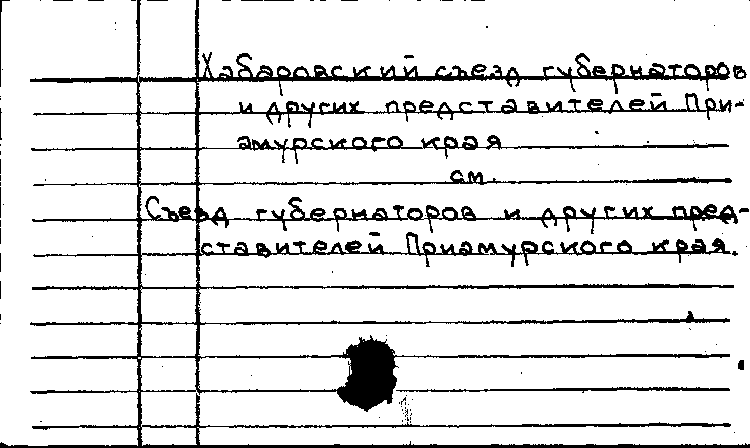 Хабаровский съезд губернаторов
и других представителей При-
амурского края
см.
Съезд губернаторов и других пред-
ставителей Приамурского края.